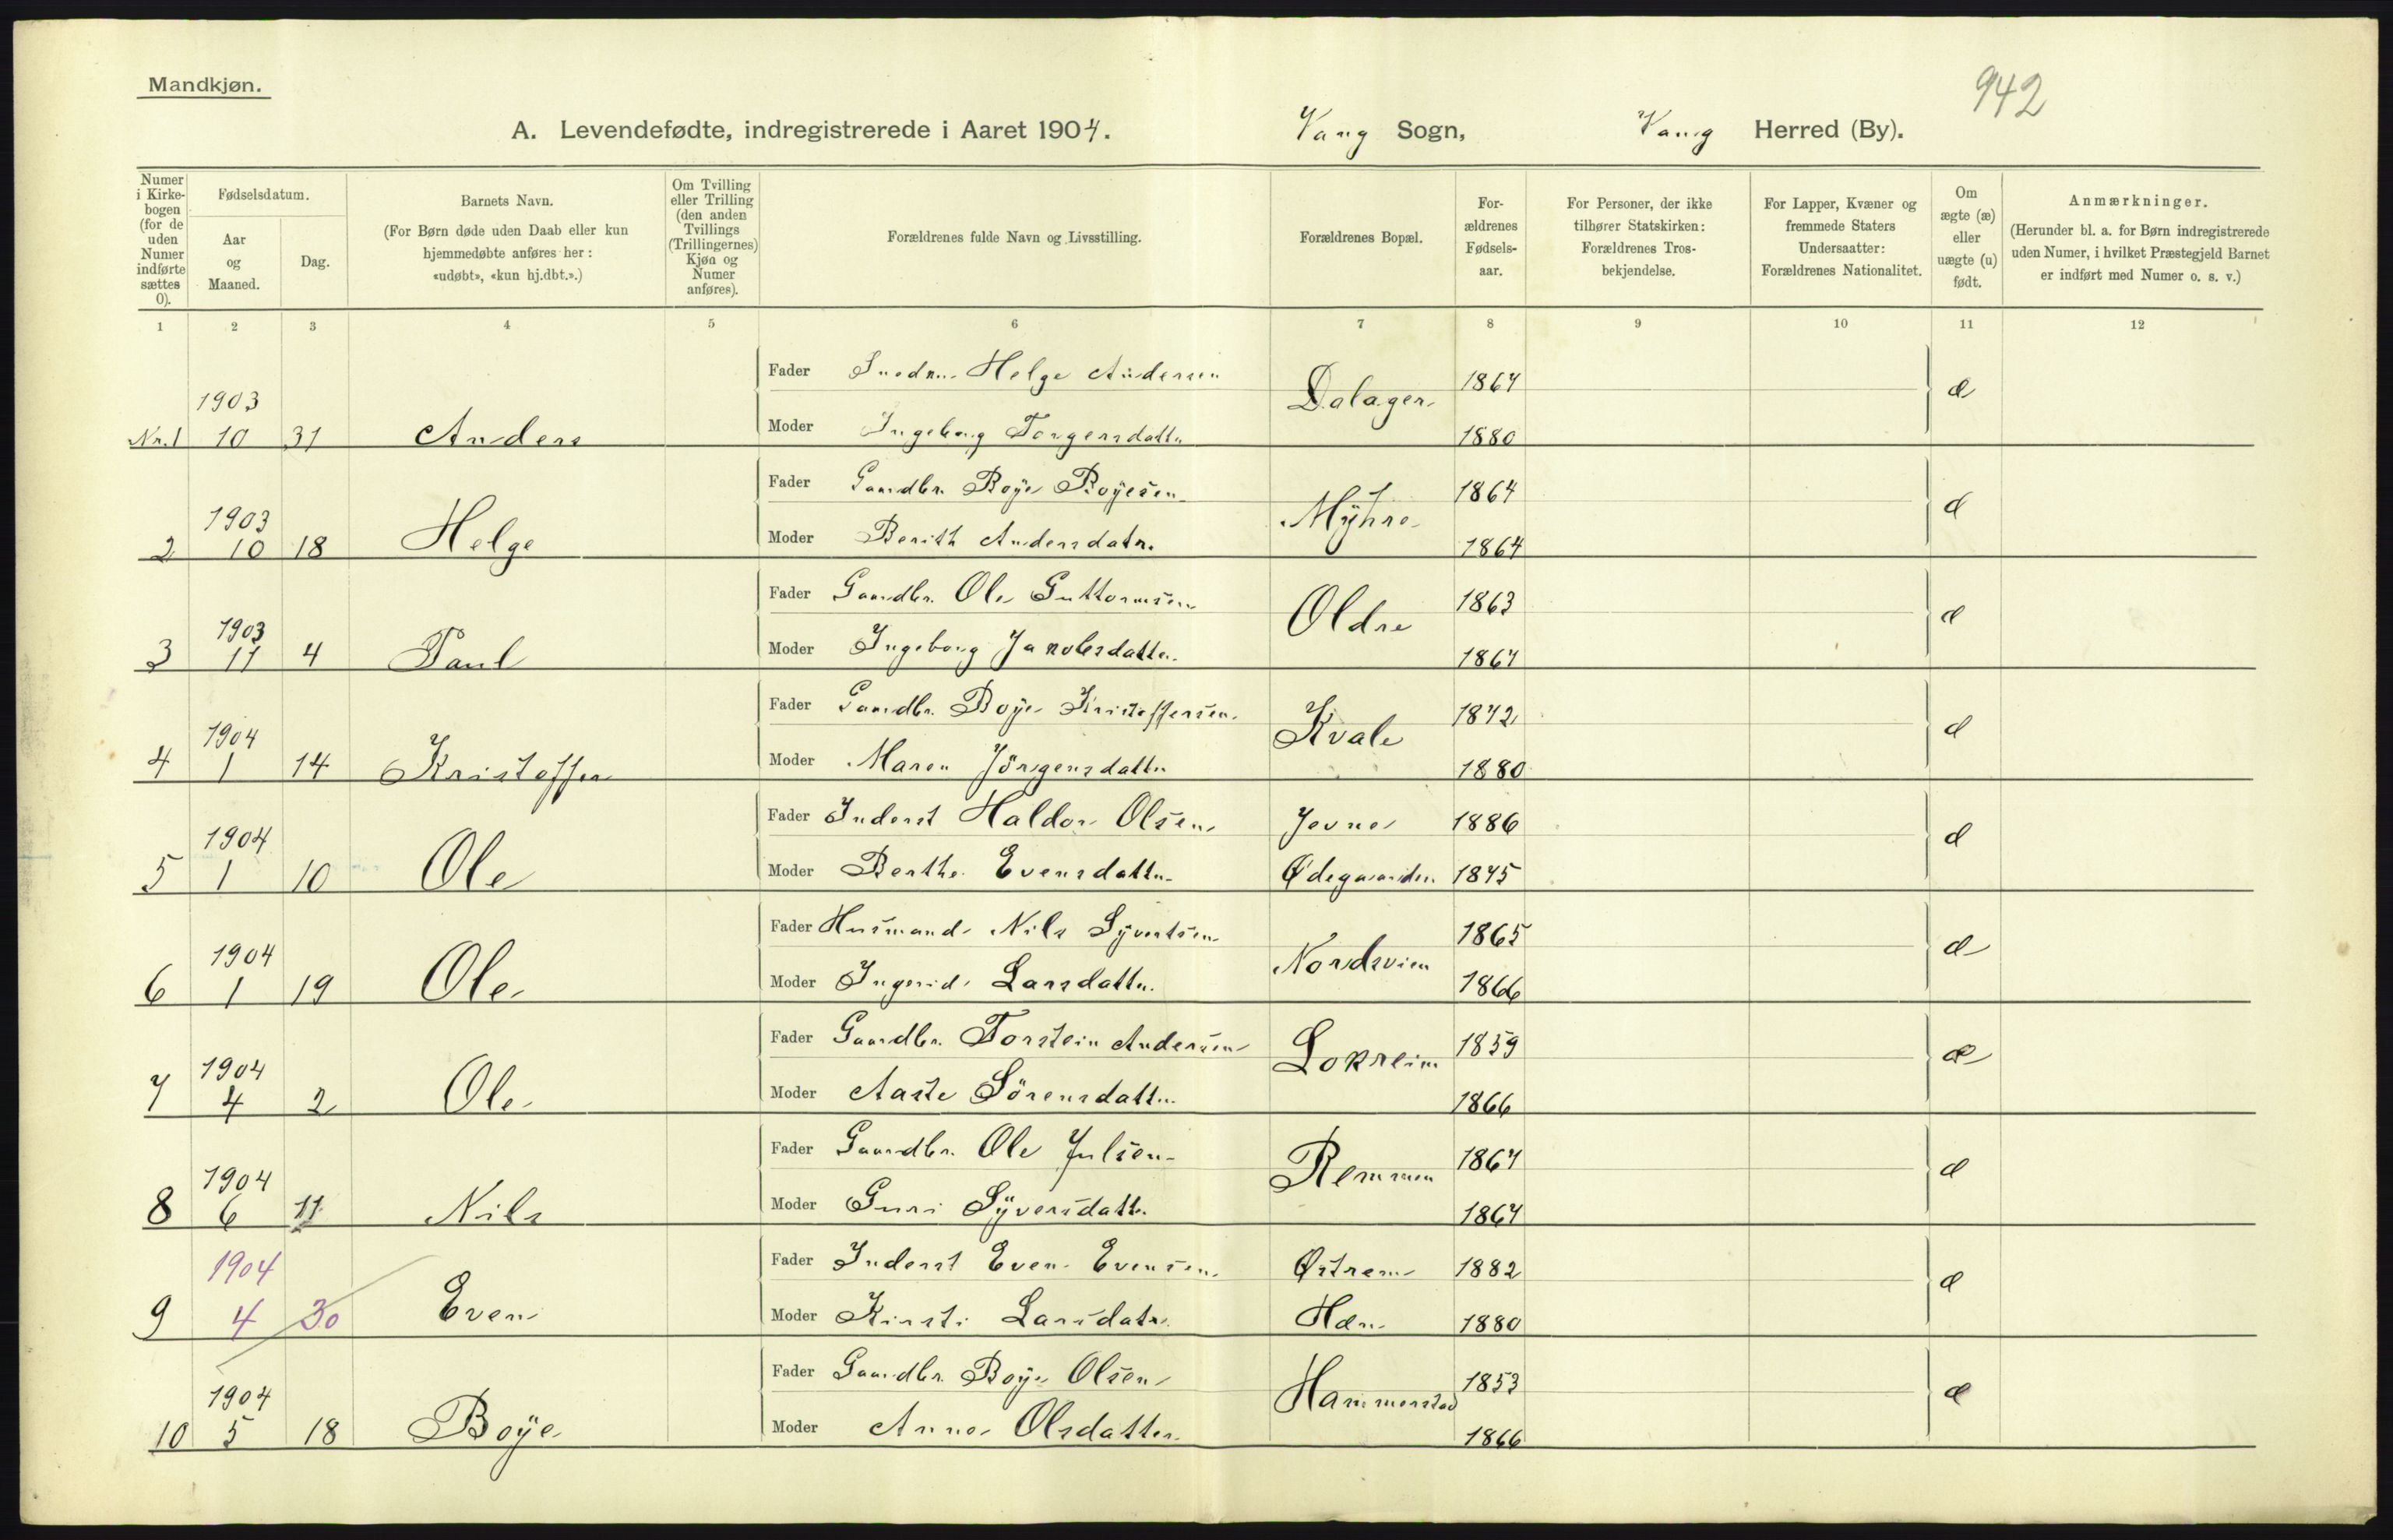 Mandkjøn.
942
A. Levendefødte, indregistrerede i Aaret 1904. Vang Sogn, Vang Herred (By).
Numer i Kirke-bogen (for de uden Numer indførte sættes 0).
Fødselsdatum.
Aar og Maaned.
Dag.
Barnets Navn.
(For Børn døde uden Daab eller kun hjemmedøbte anføres her: «udøbt», «kun hj.dbt.».)
Om Tvilling eller Trilling (den anden Tvillings (Trillingernes) Kjøn og Numer anføres).
Forældrenes fulde Navn og Livsstilling.
Forældrenes Bopæl.
For-ældrenes Fødsels-aar.
For Personer, der ikke tilhører Statskirken: Forældrenes Tros-bekjendelse.
For Lapper, Kvæner og fremmede Staters Undersaatter: Forældrenes Nationalitet.
Om ægte (æ) eller uægte (u) født.
Anmærkninger.
(Herunder bl. a. for Børn indregistrerede uden Numer, i hvilket Præstegjeld Barnet er indført med Numer o. s. v.)
1 2 3 4 5 6 7 8 9 10 11 12
Fader Helge Andersen Dalager 1867 æ
1903
Nr. 1 10 31 Anders Moder Ingeborg Torgersdatter 1880
Fader Gaardbr. Boye Boyesen Myhre 1864 æ
1903
2 10 18 Helge Moder Berith Andersdatr. 1864
Fader Gaardbr. Ole Guttormsen Oldre 1863 æ
1903
3 11 4 Paul Moder Ingeborg Jakobsdatter 1867
Fader Gaardbr. Boye Kristoffersen Kvale 1872 æ
1904
4 1 14 Kristoffer Moder Maren Jörgensdatter 1880
Fader Inderst Haldor Olsen Jevne 1886 æ
1904
5 1 10 Ole Moder Berthe Evensdatter Ødegaarden 1875
Fader Husmand Nils Syvertsen Nordsvien 1865 æ
1904
6 1 19 Ole Moder Ingerid Larsdatter 1866
Fader Gaardbr. Torstein Andersen Lokreim 1859 æ
1904
7 4 2 Ole Moder Aaste Sörensdatter 1866
Fader Gaardbr. Ole Julsen Remmen 1867 æ
1904
8 6 11 Nils Moder Guri Syversdatter 1867
1904 Fader Inderst Even Evensen Østrem 1882 æ
9 4 30 Even Moder Kirsti Larsdatr. Hæn 1880
Fader Gaardbr. Boye Olsen Hammerstad 1853 æ
1904
10 5 18 Boye Moder Anne Olsdatter 1866